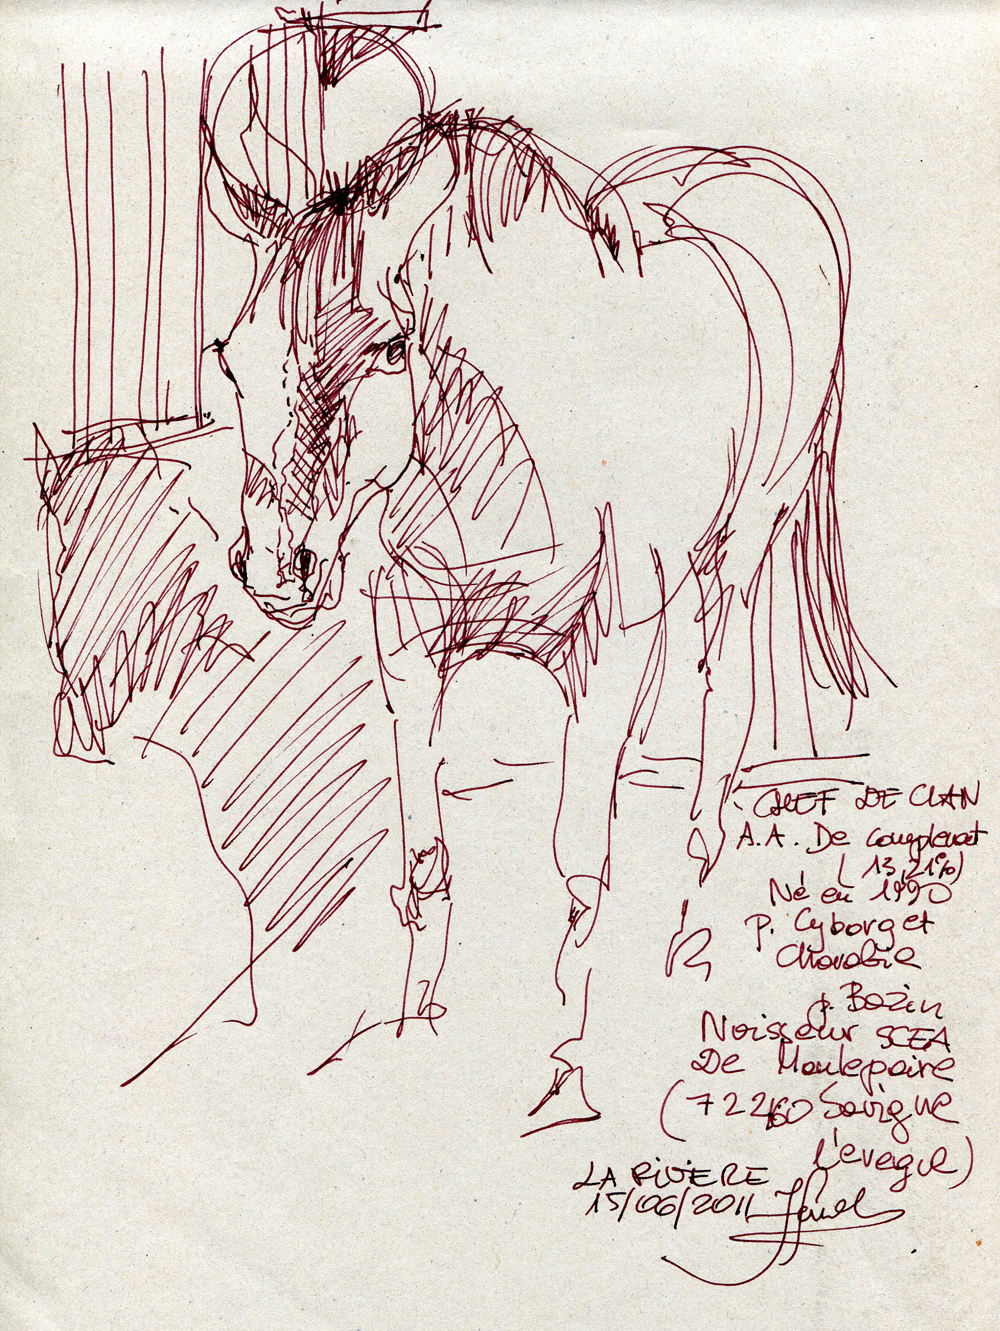 CHEF DE CLAN
A.A. De complement
( 13,21%)
Né en 1990
p. Cyborg et
Chorobie
p. Bozin
Noisseur SCEA
De Montepoire
(72460 Sovigne
l'evegue)
LA RIVIERE
15/06/2011